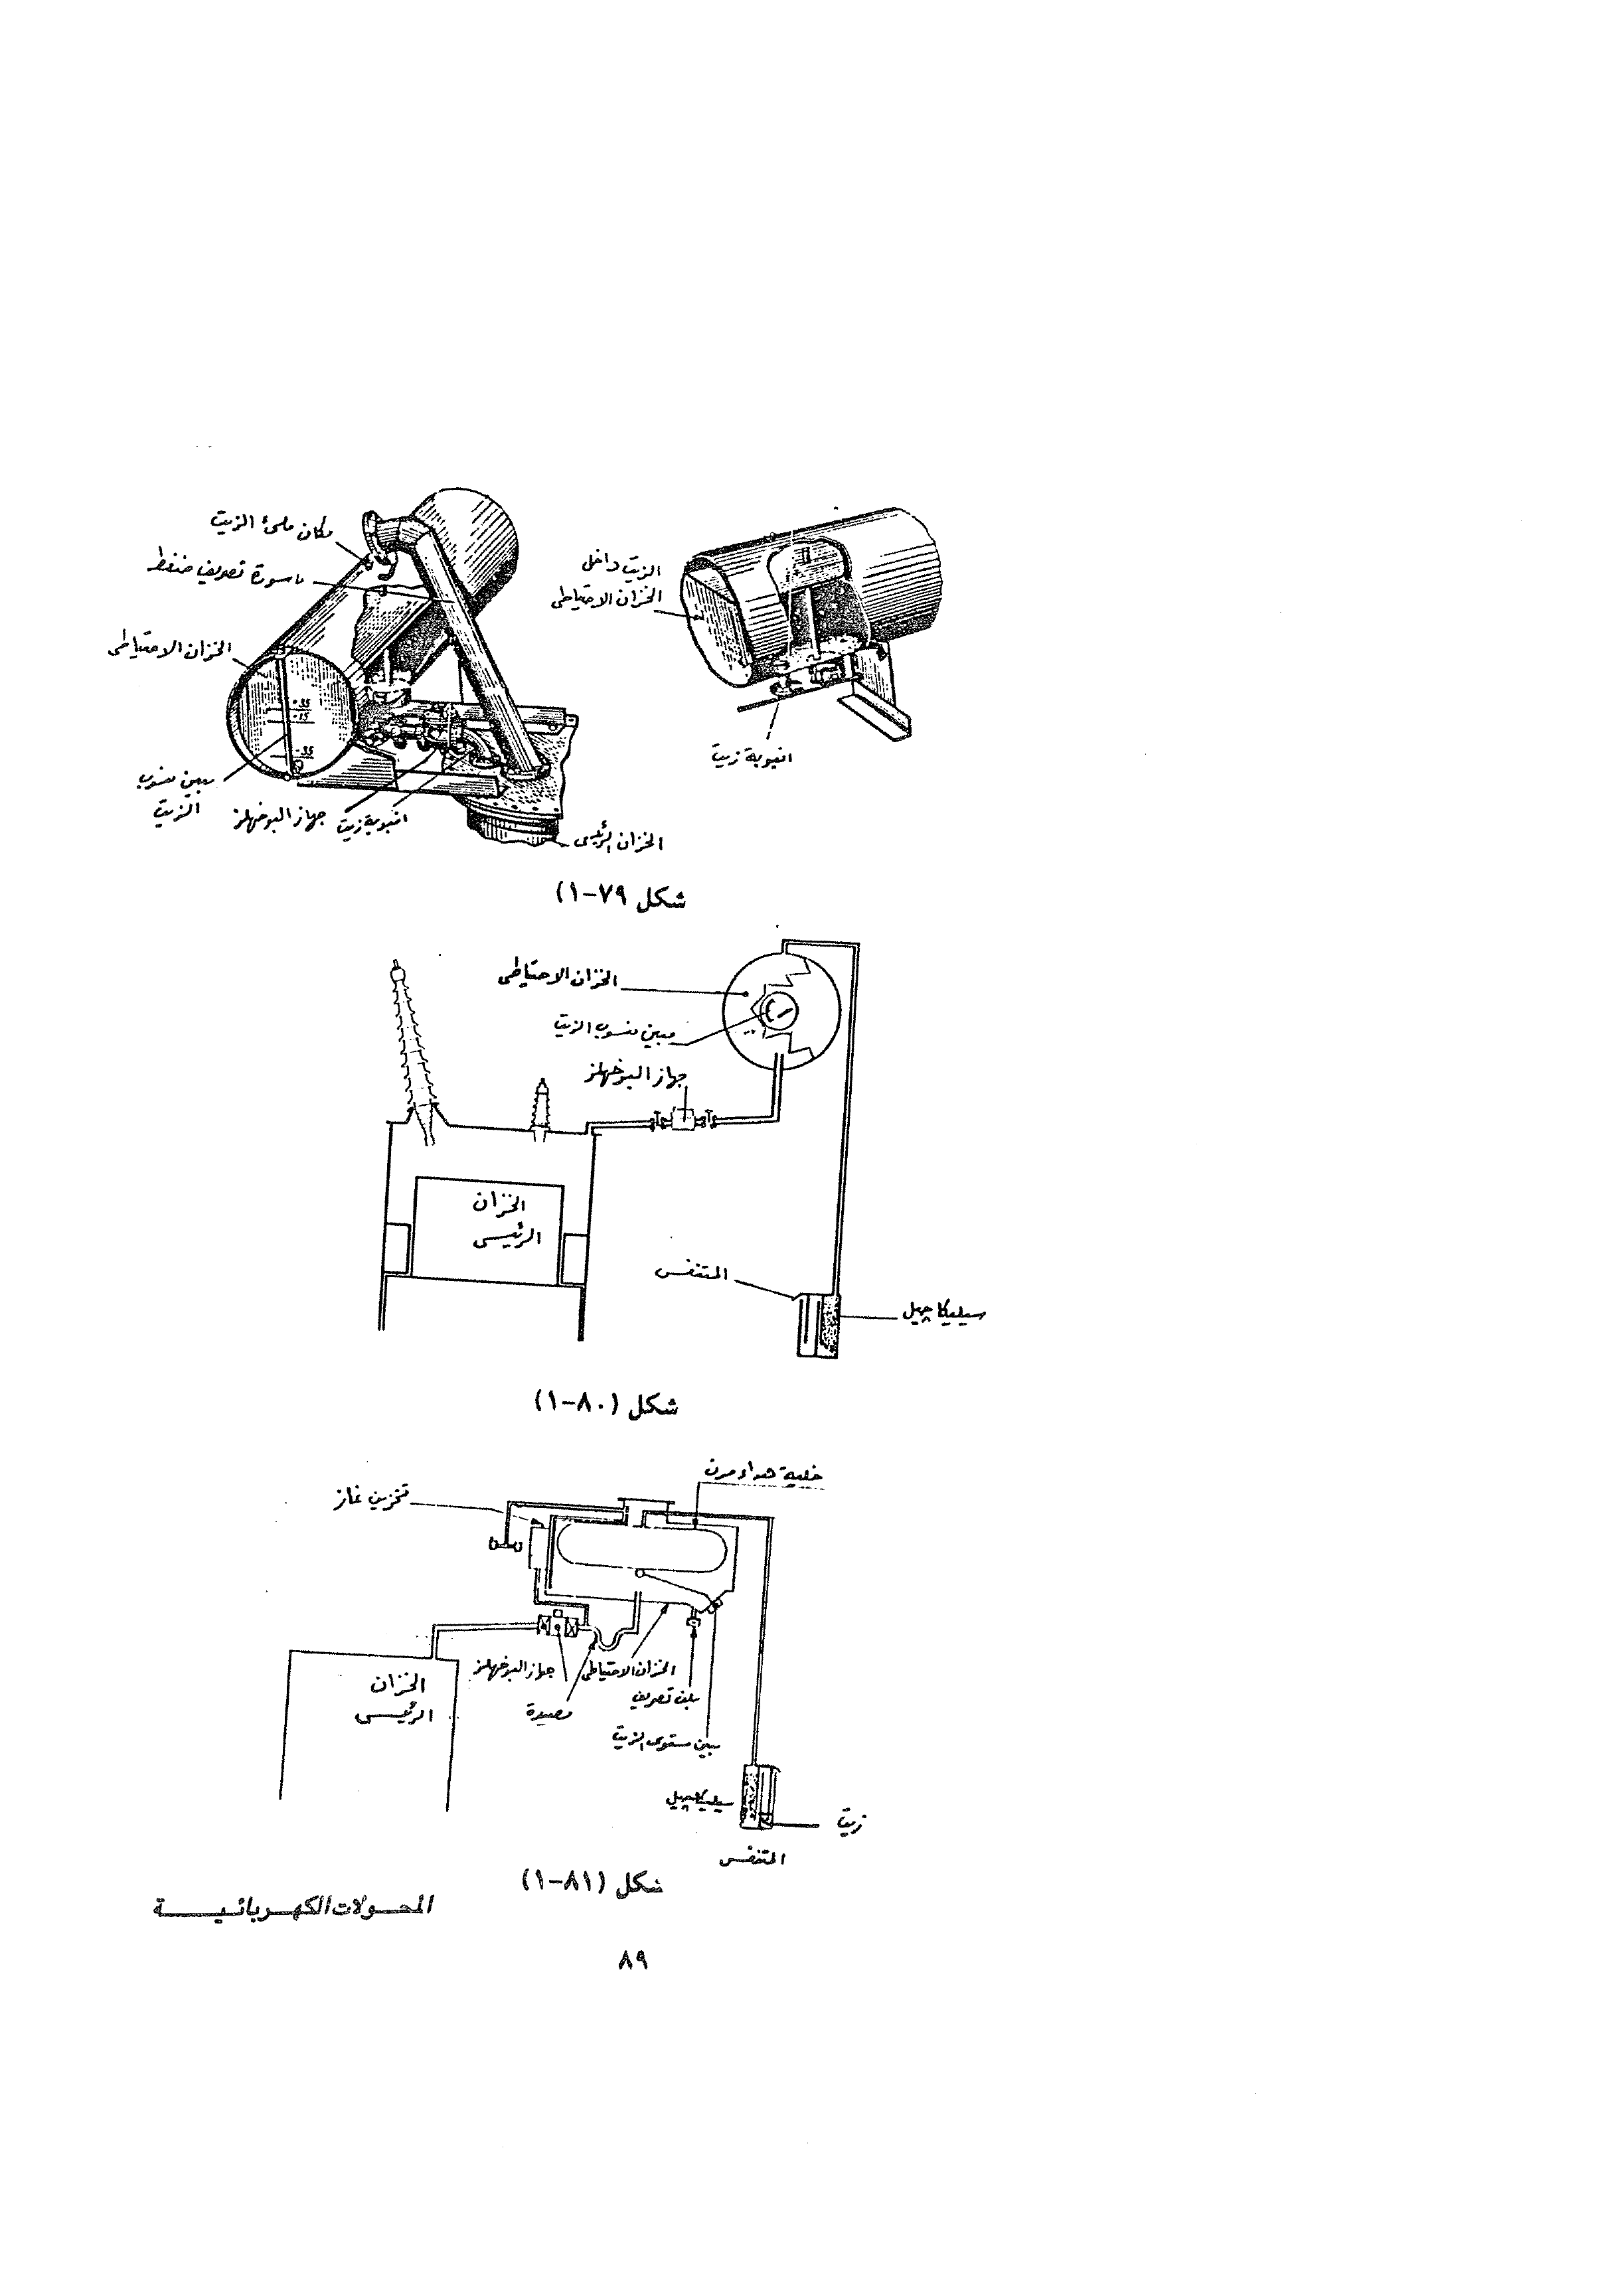 مكان ملئ الزيت
ماسورة تصريف ضغط
الخزان الاحتياطى
+35
-15
-35
مبين منسوب
الزيت
جهاز البوخهلز
انبوبة زيت
الخزان الرئيسى
الزيت داخل
الخزان الاحتياطى
انبوبة زيت
شكل ٧٩-١)
الخزان الاحتياطى
مبين منسوب الزيت
جهاز البوخهلز
الخزان
الرئيسى
المتنفس
سيليكاجيل
شكل (٨٠-١)
خلية هواء مرن
تخزين غاز
الخزان
الرئيسى
جهاز البوخهلز
الخزان الاحتياطى
مصيدة
بلف تصريف
مبين مستوى الزيت
سيليكاجيل
زيت
المتنفس
شكل (٨١-١)
المحولات الكهربائية
٨٩